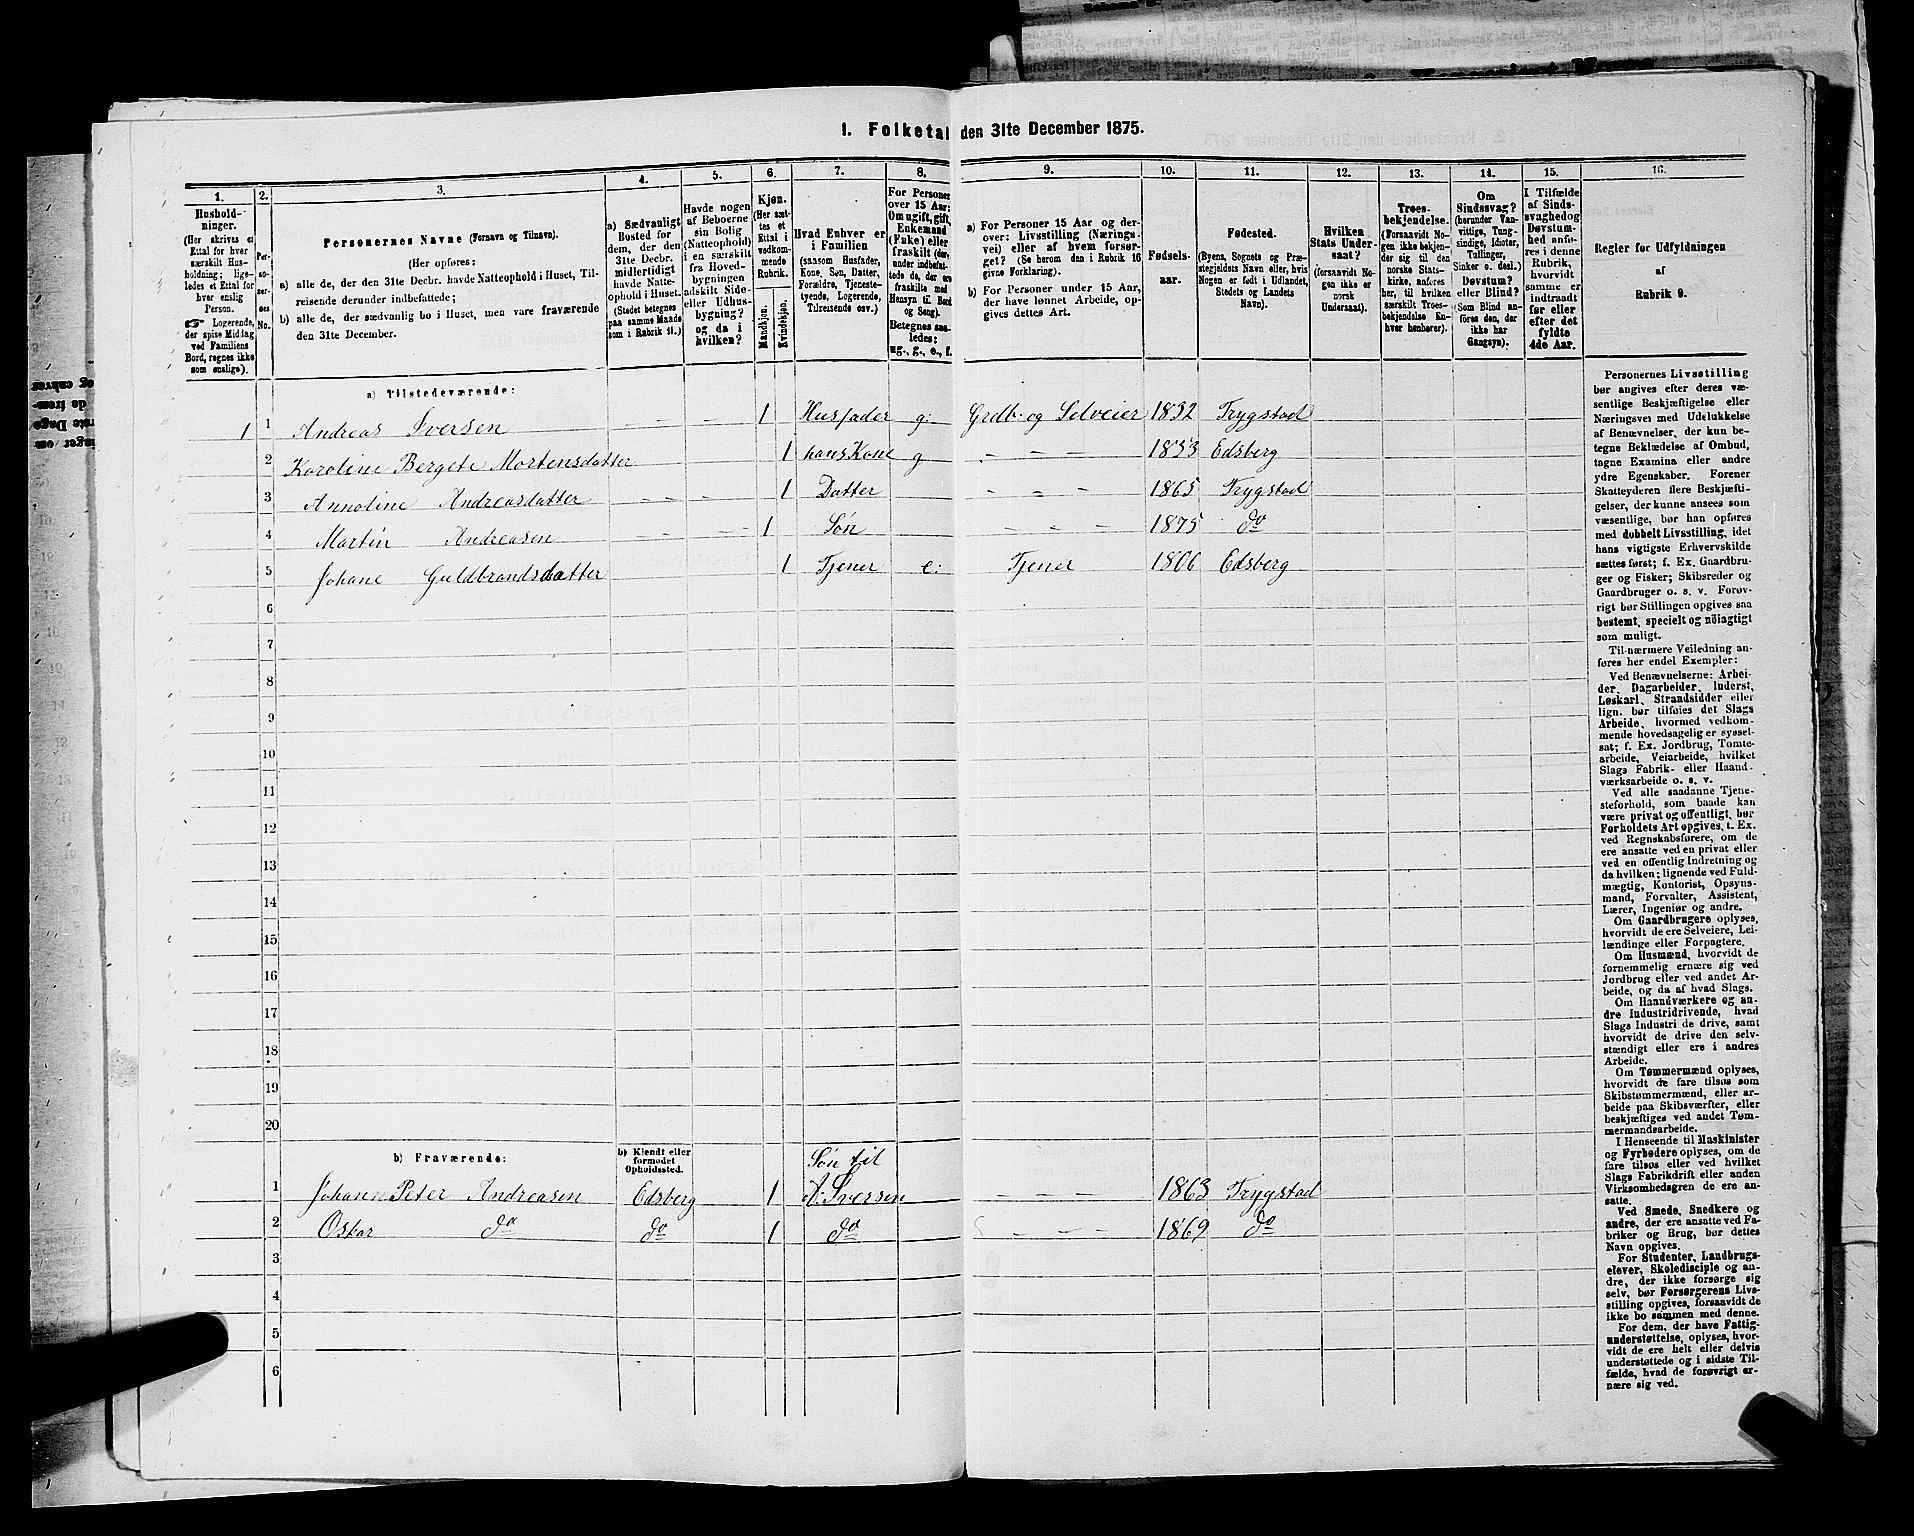 1. Folketal den 31te December 1875.
1. 2. 3. 4. 5. 6. 7. 8. 9. 10. 11. 12. 13. 14. 15. 16.
Hushold-
ninger.
(Her skrives et
Ettal for hver
særskilt Hus-
holdning; lige-
ledes et Ettal for
hver enslig
Person.
☞ Logerende,
der spise Middag
ved Familiens
Bord, regnes ikke
som enslige).
Per-
so-
ner-
nes
No.
Personernes Navne (Fornavn og Tilnavn).
(Her opføres:
a) alle de, der den 31te Decbr. havde Natteophold i Huset, Til-
reisende derunder indbefattede;
b) alle de, der sædvanlig bo i Huset, men vare fraværende
den 31te December.
a) Sædvanligt
Bosted for
dem, der den
31te Decbr.
midlertidigt
havde Natte-
ophold i Huset.
(Stedet betegnes
paa samme Maade
som i Rubrik 11.)
Havde nogen
af Beboerne
sin Bolig
(Natteophold)
i en særskilt
fra Hoved-
bygningen
adskilt Side-
eller Udhus-
bygning?
og da i
hvilken?
Kjøn.
(Her sæt-
tes et
Ettal i
vedkom-
mende
Rubrik.
Mandkjøn.
Kvindekjøn.
Hvad Enhver er
i Familien
(saasom Husfader,
Kone, Søn, Datter,
Forældre, Tjeneste-
tyende, Logerende,
Tilreisende osv.)
For Personer
over 15 Aar:
Om ugift, gift,
Enkemand
(Enke) eller
fraskilt (der-
under indbefat-
tede de, der ere
fraskilte med
Hensyn til Bord
og Seng).
Betegnes saa-
ledes:
ug., g., e., f.
a) For Personer 15 Aar og der-
over: Livsstilling (Nærings-
vei) eller af hvem forsør-
get? (Se herom den i Rubrik 16
givne Forklaring).
b) For Personer under 15 Aar,
der have lønnet Arbeide, op-
gives dettes Art.
Fødsels-
aar.
Fødested.
(Byens, Sognets og Præ-
stegjeldets Navn eller, hvis
Nogen er født i Udlandet,
Stedets og Landets
Navn).
Hvilken
Stats Under-
saat?
(forsaavidt No-
gen ikke er
norsk
Undersaat).
Troes-
bekjendelse.
(Forsaavidt No-
gen ikke bekjen-
der sig til den
norske Stats-
kirke, anføres
her, til hvilken
særskilt Troes-
bekjendelse En-
hver henhører).
Om
Sindssvag?
(herunder Van-
vittige, Tung-
sindige, Idioter,
Tullinger,
Sinker o. desl.)
Døvstum?
eller Blind?
(Som Blind an-
føres den, der
ikke har
Gangsyn).
I Tilfælde
af Sinds-
svaghed og
Døvstum-
hed anfø-
res i denne
Rubrik,
hvorvidt
samme er
indtraadt
før eller
efter det
fyldte
4de Aar.
Regler for Udfyldningen
af
Rubrik 9.
a) Tilstedeværende:
1 1 Andreas Iversen — — — 1 Husfader g: Grdb. og Selveier 1832 Trygstad
2 Karoline Bergete Mortensdatter 1 hans Kone g — — — 1833 Edsberg
3 Annoline Andreasdatter — — — 1 Datter — — — 1865 Trygstad
4 Martin Andreasen — — — 1 Søn — — — 1875 do
5 Johane Guldbrandsdatter 1 Tjener e: Tjener 1806 Edsberg
6
7
8
9
10
11
12
13
14
15
16
17
18
19
20
b) Fraværende:
b) Kjendt eller
formodet
Opholdssted.
1 Johann Peter Andreasen Edsberg 1 Søn til A: Iversen — — — 1863 Trygstad
2 Oskar do do 1 do — — 1869 do
3
4
5
6
Personernes Livsstilling
bør angives efter deres væ-
sentlige Beskjæftigelse eller
Næringsvei med Udelukkelse
af Benævnelser, der kun be-
tegne Beklædelse af Ombud,
tagne Examina eller andre
ydre Egenskaber. Forener
Skatteyderen flere Beskjæfti-
gelser, der kunne ansees som
væsentlige, bør han opføres
med dobbelt Livsstilling, idet
hans vigtigste Erhvervskilde
sættes først; f. Ex. Gaardbru-
ger og Fisker; Skibsreder og
Gaardbruger o. s. v. Forøv-
rigt bør Stillingen opgives saa
bestemt, specielt og nöiagtigt
som muligt.
Til nærmere Veiledning an-
føres her endel Exempler:
Ved Benævnelserne: Arbei-
der, Dagarbeider, Inderst,
Løskarl, Strandsidder eller
lign. bør tilføies det Slags
Arbeide, hvormed vedkom-
mende hovedsagelig er syssel-
sat; f. Ex. Jordbrug, Tomte-
arbeide, Veiarbeide, hvilket
Slags Fabrik- eller Haand-
værksarbeide o. s. v.
Ved alle saadanne Tjene-
steforhold, som baade kan
være privat og offentligt, bør
Forholdets Art opgives, t. Ex.
ved Regnskabsførere, om de
ere ansatte ved en privat eller
ved en offentlig Indretning og
da hvilken; lignende ved Fuld-
mægtig, Kontorist, Opsyns-
mand, Forvalter, Assistent,
Lærer, Ingeniør og andre.
Om Gaardbrugere oplyses,
hvorvidt de ere Selveiere, Lei-
lændinge eller Forpagtere.
Om Husmænd, hvorvidt de
fornemmelig ernære sig ved
Jordbrug eller ved andet Ar-
beide, og da af hvad Slags.
Om Haandværkere og an-
dre Industridrivende, hvad
Slags Industri de drive, samt
hvorvidt de drive den selv-
stændigt eller ere i andres
Arbeide.
Om Tømmermænd oplyses,
hvorvidt de fare tilsøs som
Skibstømmermænd, eller ar-
beide paa Skibsværfter, eller
beskjæftiges ved andet Tøm-
mermandsarbeide.
I Henseende til Maskinister
og Fyrbødere oplyses, om de
fare tilsøs eller ved hvilket
Slags Fabrikdrift eller anden
Virksomhedsgren de ere an-
satte.
Ved Smede, Snedkere og
andre, der ere ansatte ved Fa-
briker og Brug, bør dettes
Navn opgives.
For Studenter, Landbrugs-
elever, Skoledisciple og an-
dre, der ikke forsørge sig
selv, bør Forsørgerens Livs-
stilling opgives, forsaavidt de
ikke bo sammen med denne.
For dem, der have Fattig-
understøttelse, oplyses, hvor-
vidt de ere helt eller delvis
understøttede og i sidste Til-
fælde, hvad de forøvrigt er-
nære sig ved.